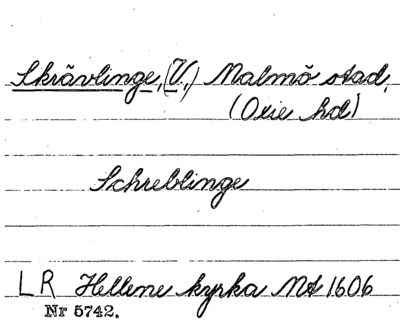 Skrävlinge, (V.) Malmö stad,
(Oxie hd)
Schreblinge
LR Hellene kyrka Nst 1606
Nr 5742.